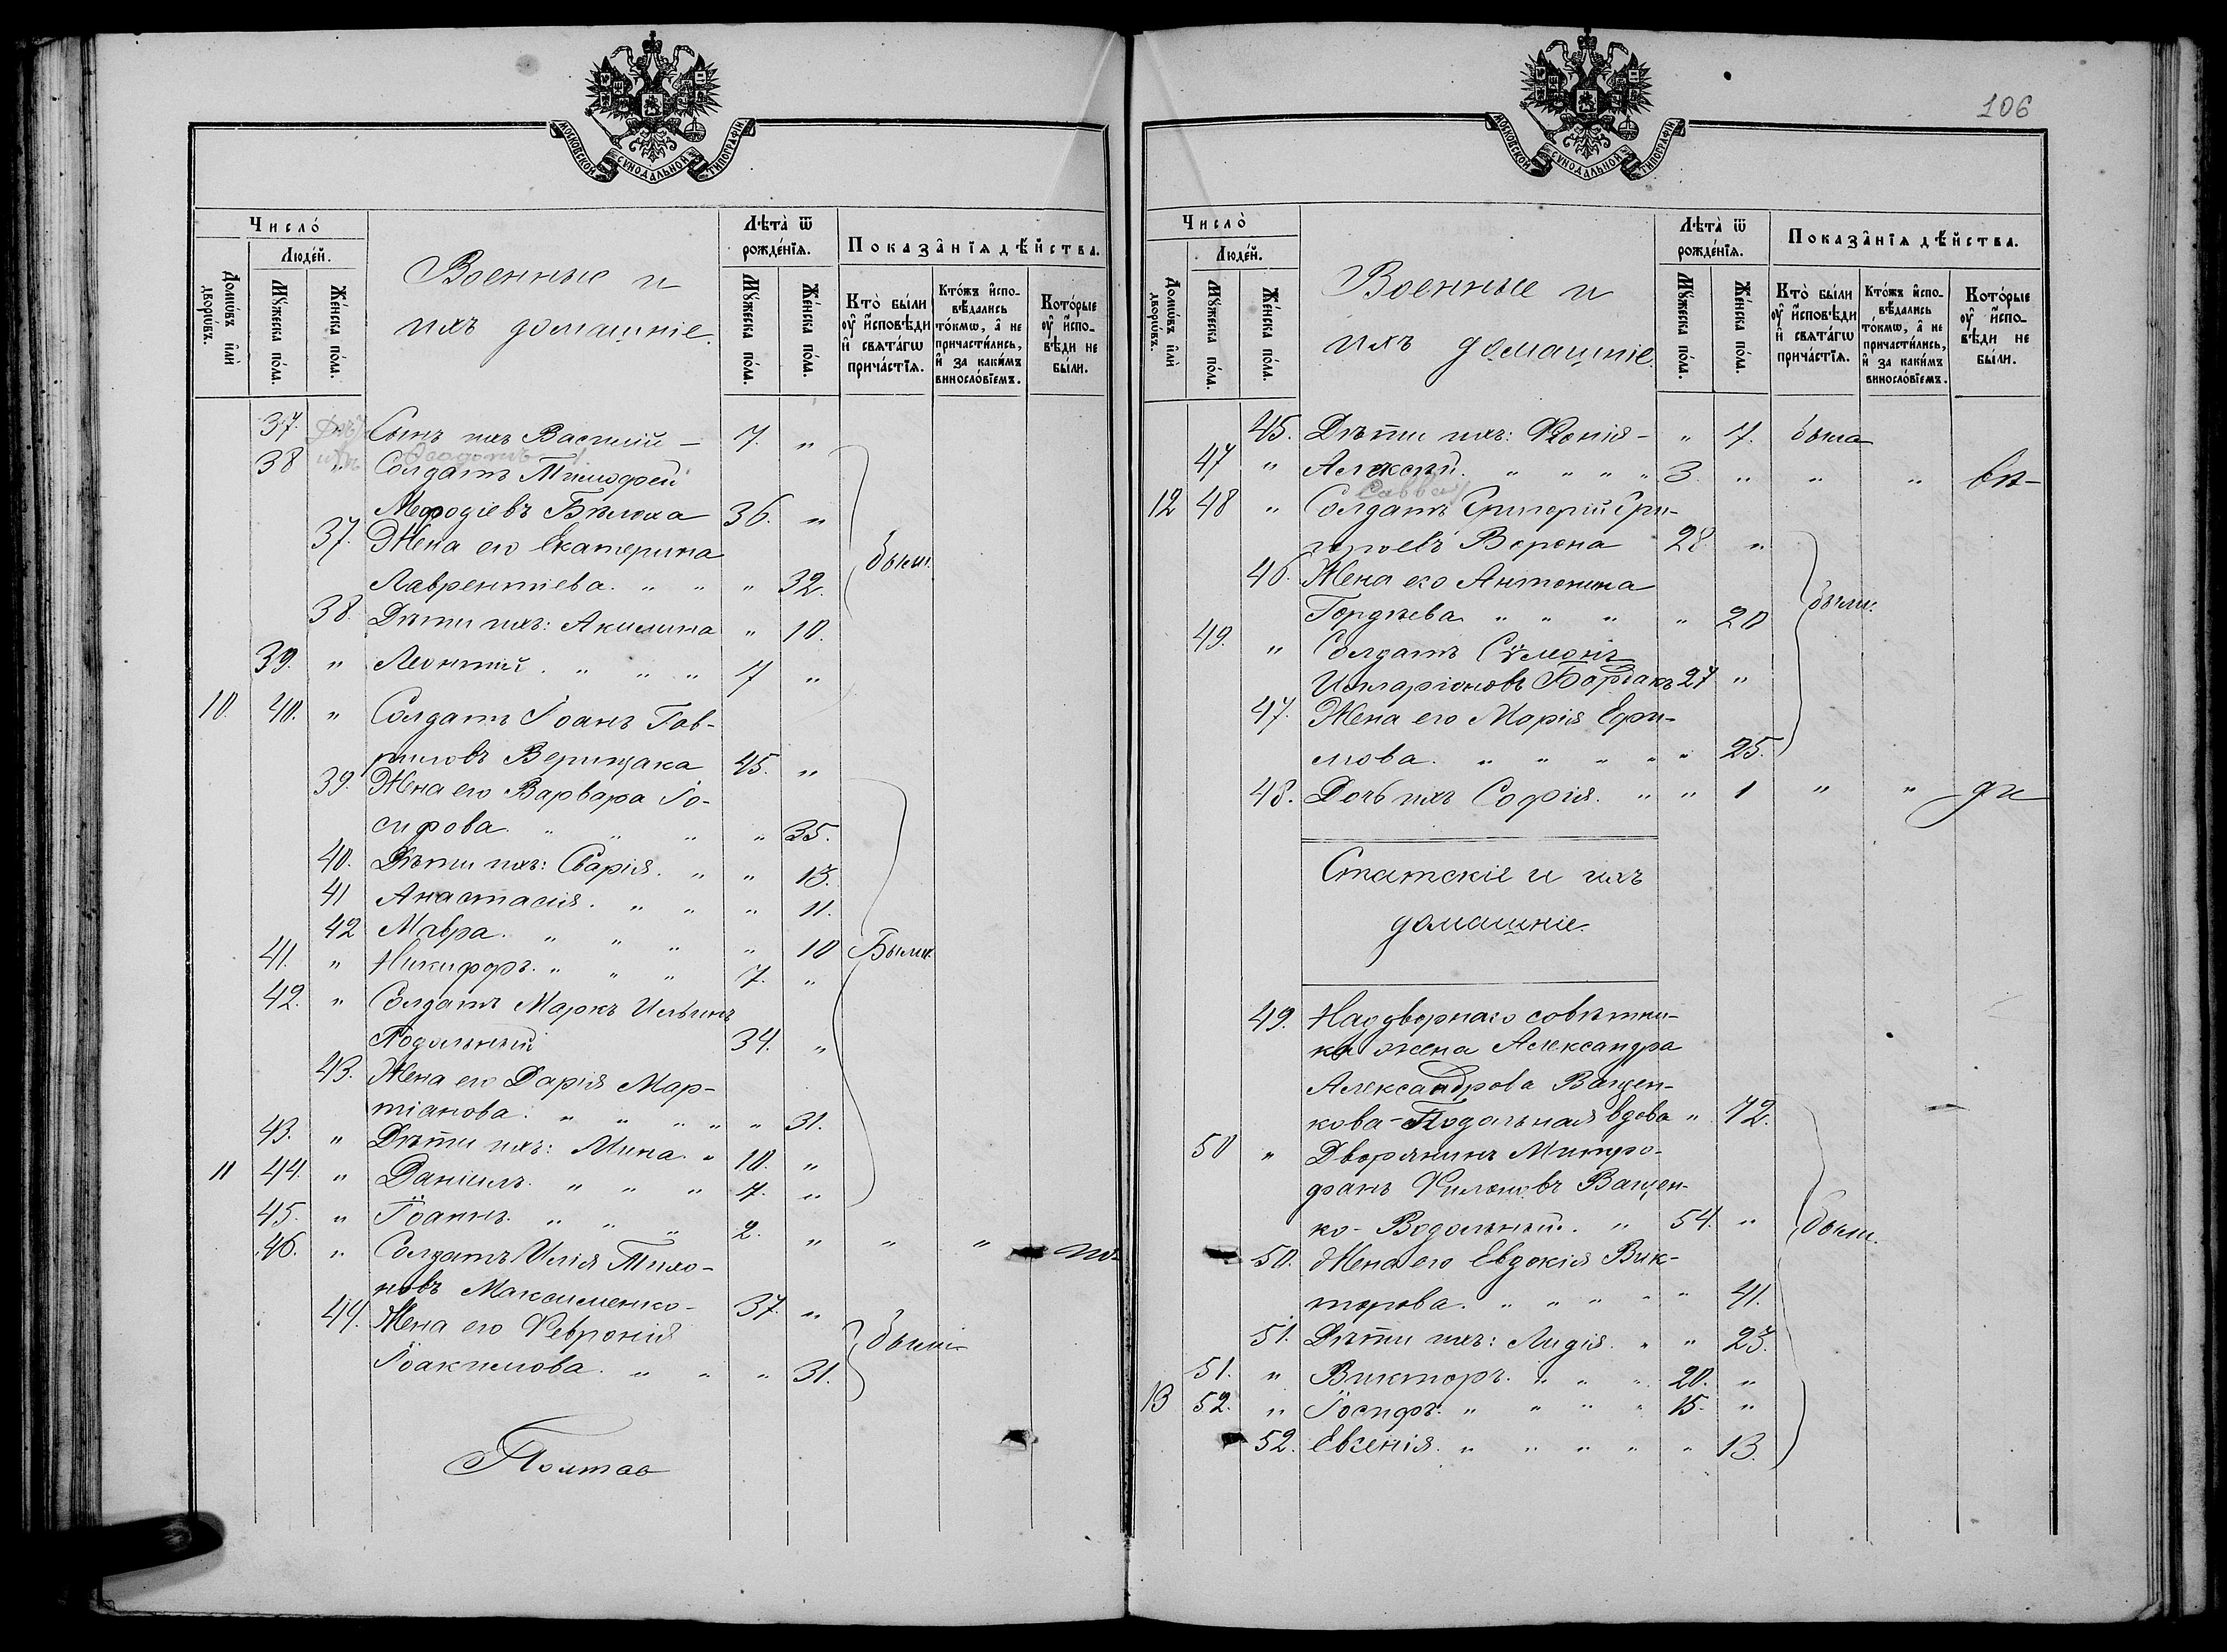 МОСКОВСКОЙ СѴНОДАЛЬНОЙ ТИПОГРАФІИ
Число̀
Людей.
Домѡвъ или дворѡвъ.
Мꙋжеска пола.
Женска пола.
Военные и
ихъ домашніе.
Лѣта ѿ рожденїѧ.
Мꙋжеска пола.
Женска пола.
Показанїѧ дѣйства.
Кто были оу исповѣди и свѧтагѡ причастїѧ.
Ктожъ исповѣдались токмѡ, а не причастились, и за какимъ винословїемъ.
Которые оу исповѣди не были.
37. Сынъ ихъ Василій — 7. "
38 " Солдатъ Тимофей
Мефодіевъ Бѣлоха 36. "
37. Жена его Екатерина
Лаврентіева. " " " 32. были
38. Дѣти ихъ: Акилина " 10.
39. " Леонтій. " " " 7 "
10. 40. " Солдатъ Іоанъ Гав-
риловъ Верищака 45. "
39. Жена его Варвара Іо-
сифова. " " " " 35.
40. Дѣти ихъ: Сварія. " " 13.
41 Анастасія. " " " 11.
42 Мавра. " " " " 10 Были.
41. " Никифоръ. " " " 7. "
42. " Солдатъ Маркъ Ильинъ
Подольный 34. "
43. Жена его Дарія Мар-
тіанова. " " " " " 31.
43. " Дѣти ихъ: Мина. " 10. "
11 44. " Даніилъ. " " " 7. "
45. " Іоаннъ. " " " 2. " " "
46. " Солдатъ Илія Тихо-
новъ Максименко — 37. "
44. Жена его Феврония
Іоакимова. " " " 31. были
Полтав
106
МОСКОВСКОЙ СѴНОДАЛЬНОЙ ТИПОГРАФІИ
Число̀
Людей.
Домѡвъ или дворѡвъ.
Мꙋжеска пола.
Женска пола.
Военные и
ихъ домашніе.
Лѣта ѿ рожденїѧ.
Мꙋжеска пола.
Женска пола.
Показанїѧ дѣйства.
Кто были оу исповѣди и свѧтагѡ причастїѧ.
Ктожъ исповѣдались токмѡ, а не причастились, и за какимъ винословїемъ.
Которые оу исповѣди не были.
45. Дѣти ихъ: Ксенія — " 7. была
47 " Алексѣй. " " " " 3. " " "
Савва
12 48 " Солдатъ Григорій Гри-
горьевъ Ворона 28. "
46. Жена его Антонина
Гордѣева. " " " " 20 были.
49. " Солдатъ Сѵмонъ
Иларіоновъ Бардакъ 27 "
47. Жена его Марія Ефи-
мова. " " " " " 25.
48. Дочь ихъ Софія. " " 1 " "
Статскіе и ихъ
домашніе.
49. Надворнаго совѣтни-
ка жена Александра
Александрова Ващен-
кова-Подольная вдова " 72.
50 " Дворянинъ Митро-
фанъ Филоновъ Ващен-
ко-Водольный. " 54. " были.
50. Жена его Евдокія Вик-
торова. " " " " " 41.
51. Дѣти ихъ: Лидія. " " 23.
51. " Викторъ. " " " 20. "
13 52. " Іосифъ. " " " " 15. "
52. Евгенія. " " " " " 13.